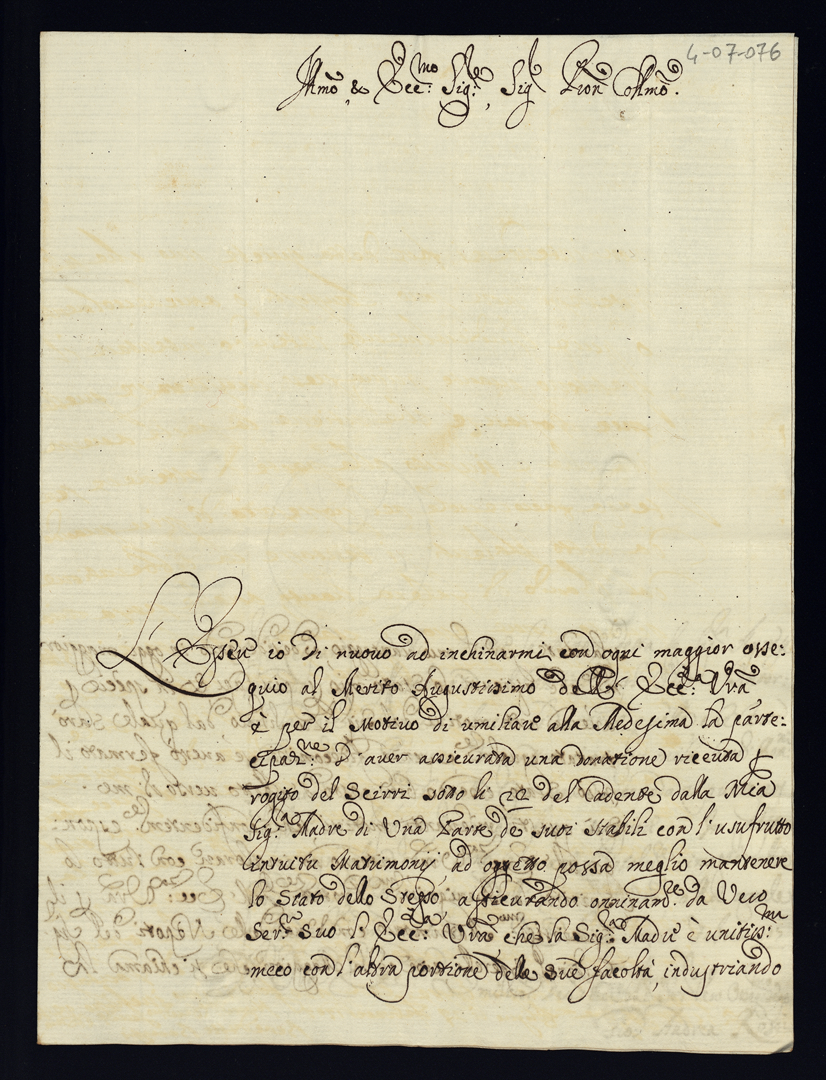 4-07-076
Illmo, & Ecc:mo Sig:re, Sig Pron Collmo.
L'Esser io di nuovo ad inchinarmi con ogni maggior osse:
quio al Merito Augustissimo dell' Ecc:za Vra
è per il Motivo di umiliare alla Medesima la parte:
cipaz:ne d'aver assicurata una donatione riceuta p
rogito del Scirri sotto li 12 del Cadente dalla Mia
Sig:a Madre di Una Parte de suoi Stabili con l'usufrutto
intuitu Matrimonij, ad oggetto possa meglio mantenere
lo Stato dello Stesso, assicurando onninam:te da Vero
Ser:re Suo l'Ecc:za Vra che la Sig:ra Madre è unitiss:ma
meco con l'altra portione delle sue facoltà, industriando